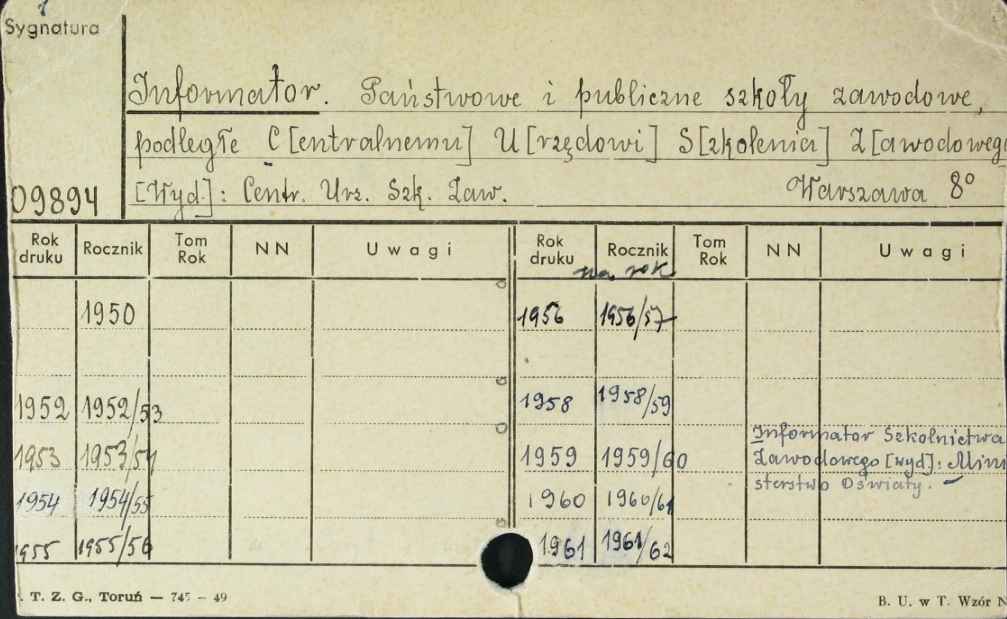 Sygnatura
Informator. Państwowe i publiczne szkoły zawodowe,
podległe C[entralnemu] U[rzędowi] S[zkolenia] Z[awodowego
09894 [Wyd.]: Centr. Urz. Szk. Zaw. Warszawa 8°
Rok druku Rocznik Tom Rok NN Uwagi Rok druku Rocznik Tom Rok NN Uwagi
na rok
1950 1956 1956/57
1952 1952/53 1958 1958/59
Informator Szkolnictwa
1953 1953/54 1959 1959/60 Zawodowego [wyd]: Mini
sterstwo Oświaty.
1954 1954/55 1960 1960/61
1955 1955/56 1961 1961/62
T. Z. G., Toruń — 745 — 49 B. U. w T. Wzór N